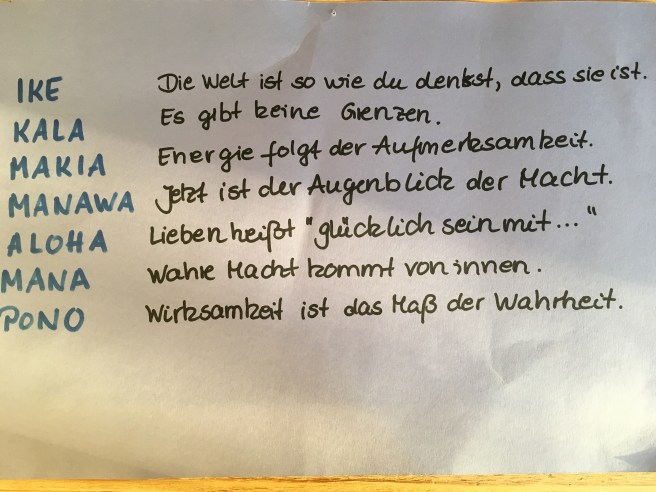 IKE Die Welt ist so wie du denkst, dass sie ist.
KALA Es gibt keine Grenzen.
MAKIA Energie folgt der Aufmerksamkeit.
MANAWA Jetzt ist der Augenblick der Macht.
ALOHA Lieben heißt "glücklich sein mit..."
MANA Wahre Macht kommt von innen.
PONO Wirksamkeit ist das Maß der Wahrheit.